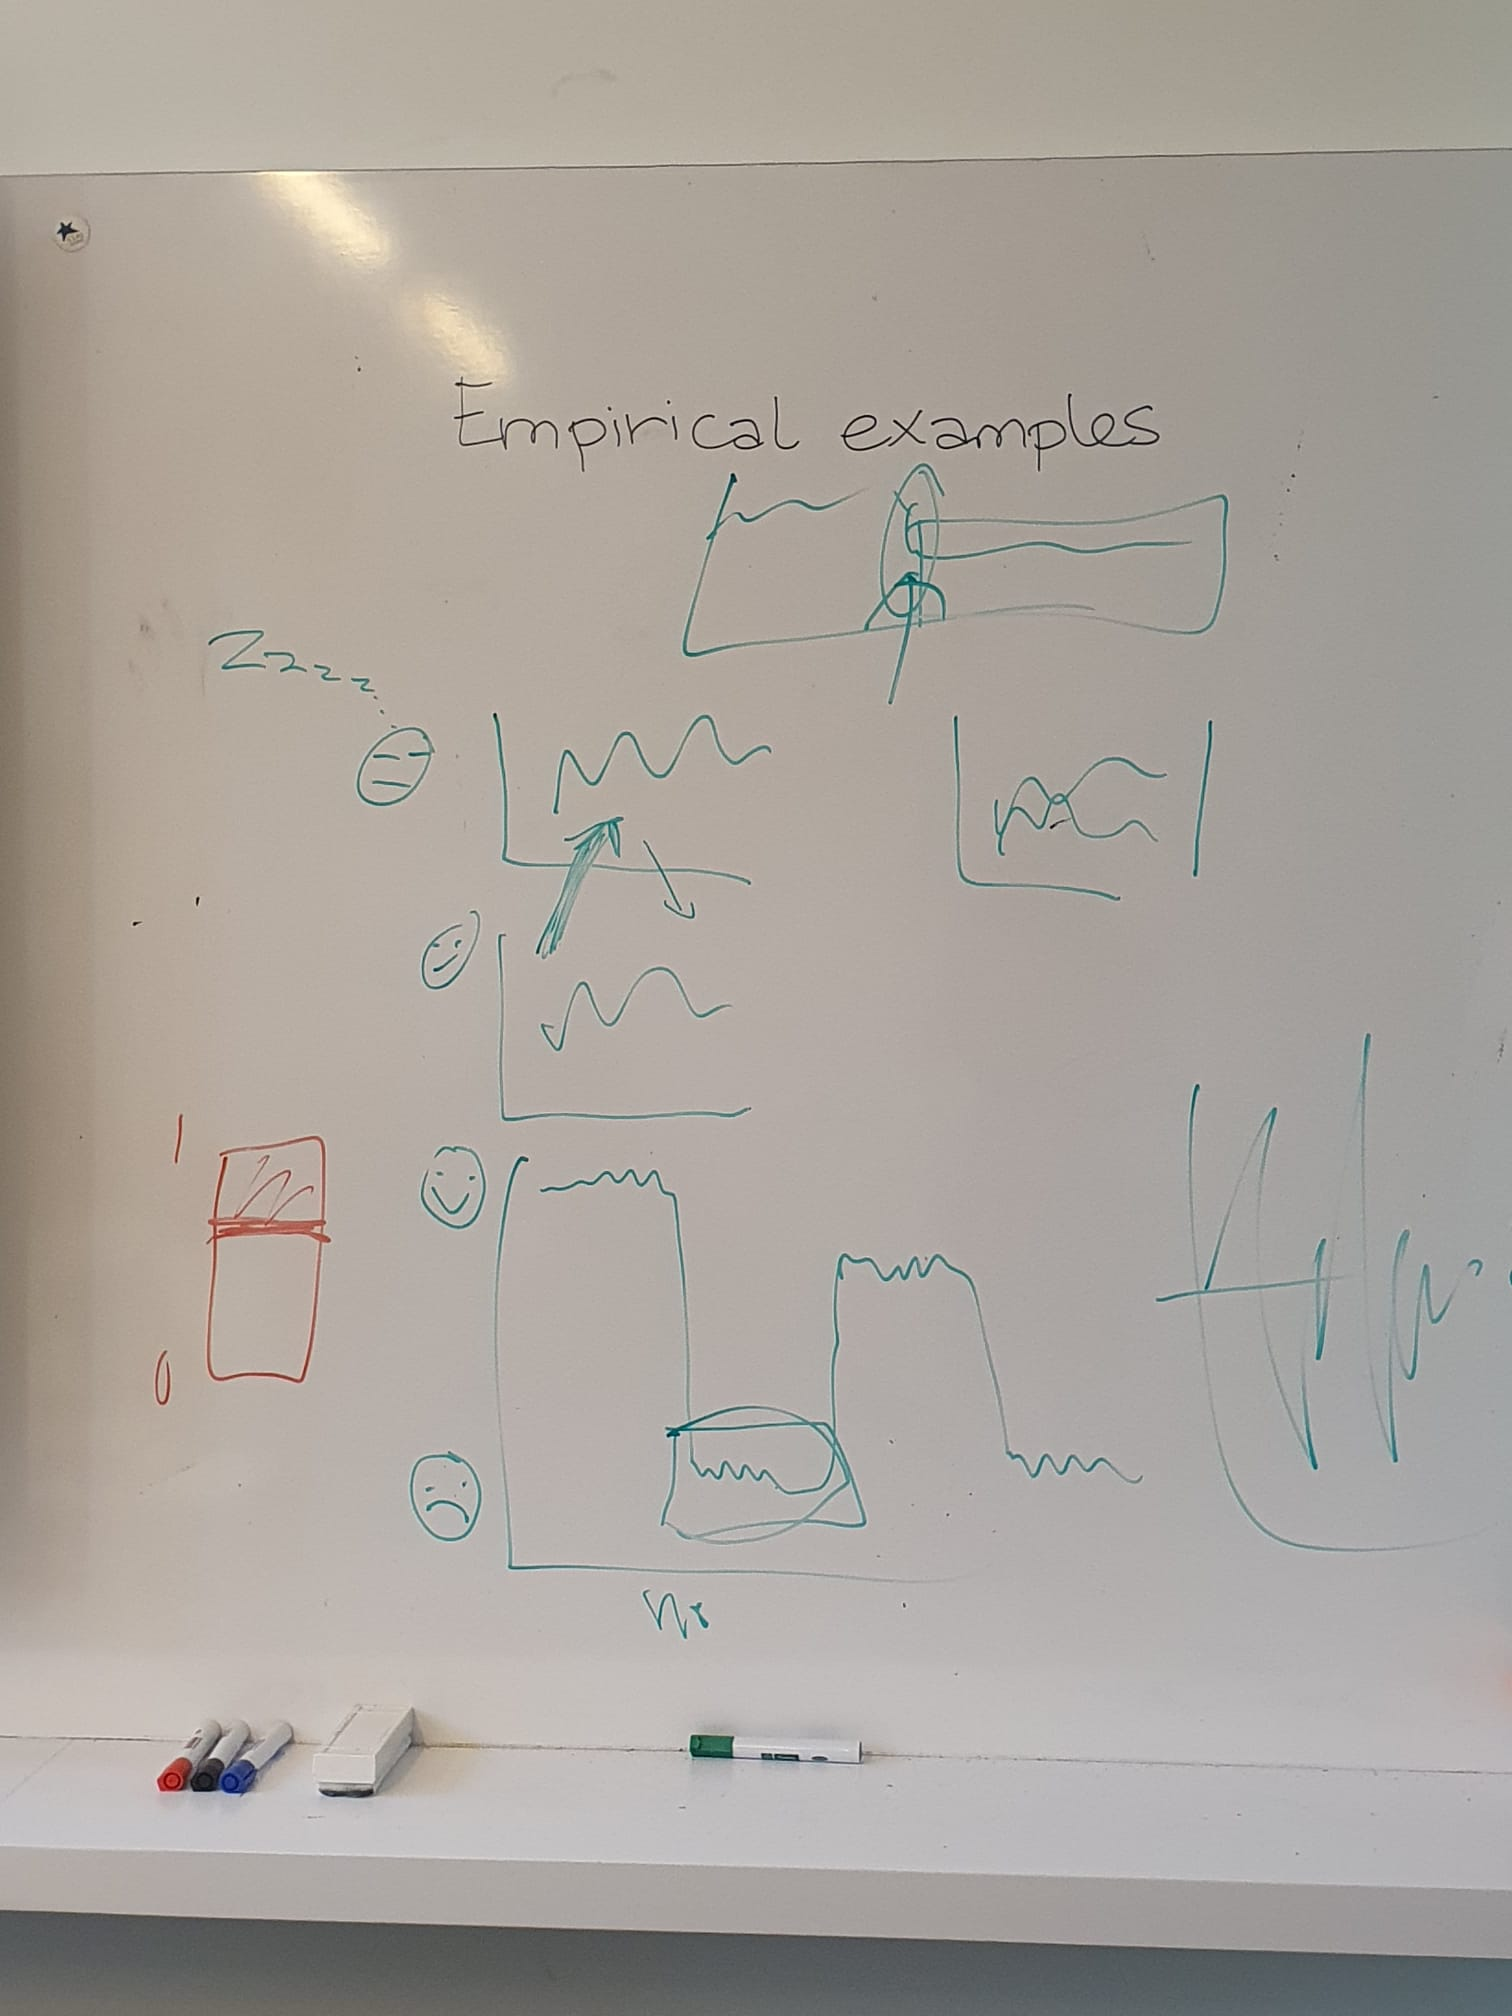 Empirical examples
Zzzz
1
0